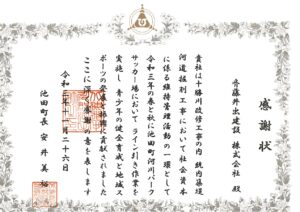 感謝状
斉藤井出建設 株式会社 殿
貴社は十勝川改修工事の内 統内築堤
河道掘削工事において 社会資本
に係る維持管理活動の一環として
令和三年の春と秋に池田町河川パーク
サッカー場において ライン引き作業を
実施し 青少年の健全育成と地域ス
ポーツの発展 振興に貢献されました
ここに深く感謝の意を表します
令和三年十一月二十六日
池田町長 安井美裕